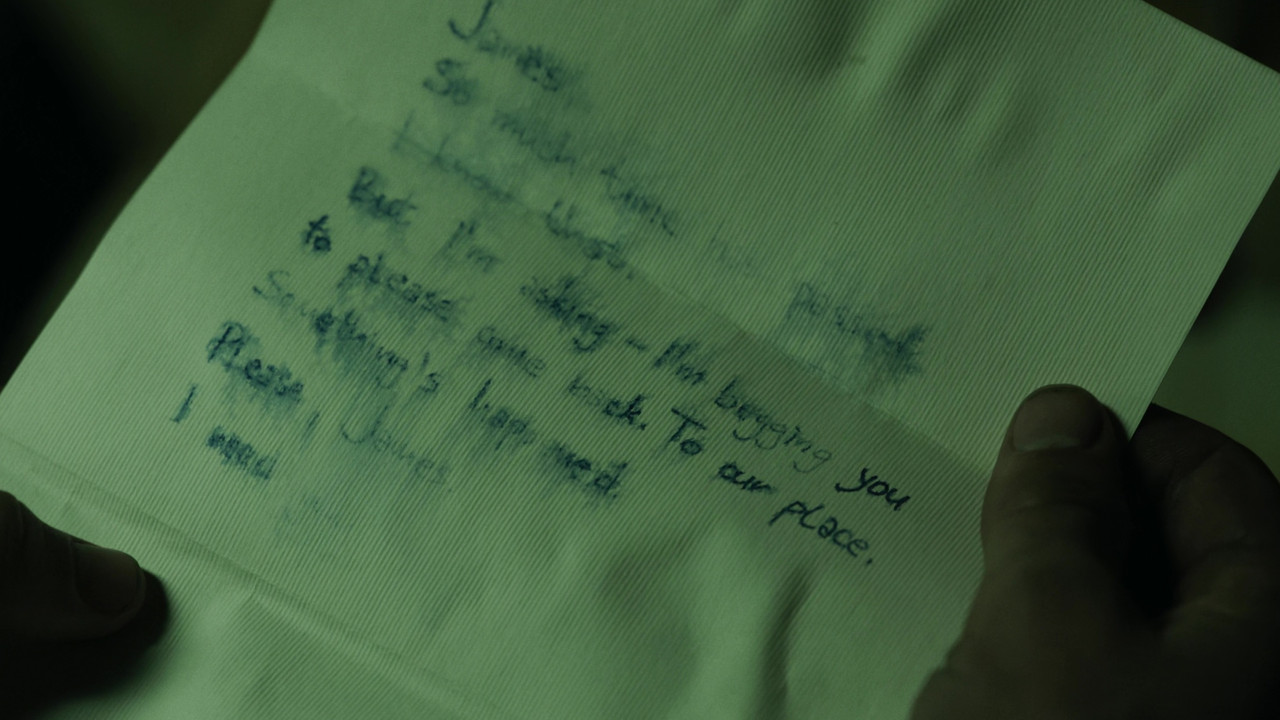 James
So much time has passed
I know that.
But I'm asking – I'm begging you
to please come back. To our place.
Something's happened.
Please, James
I need you